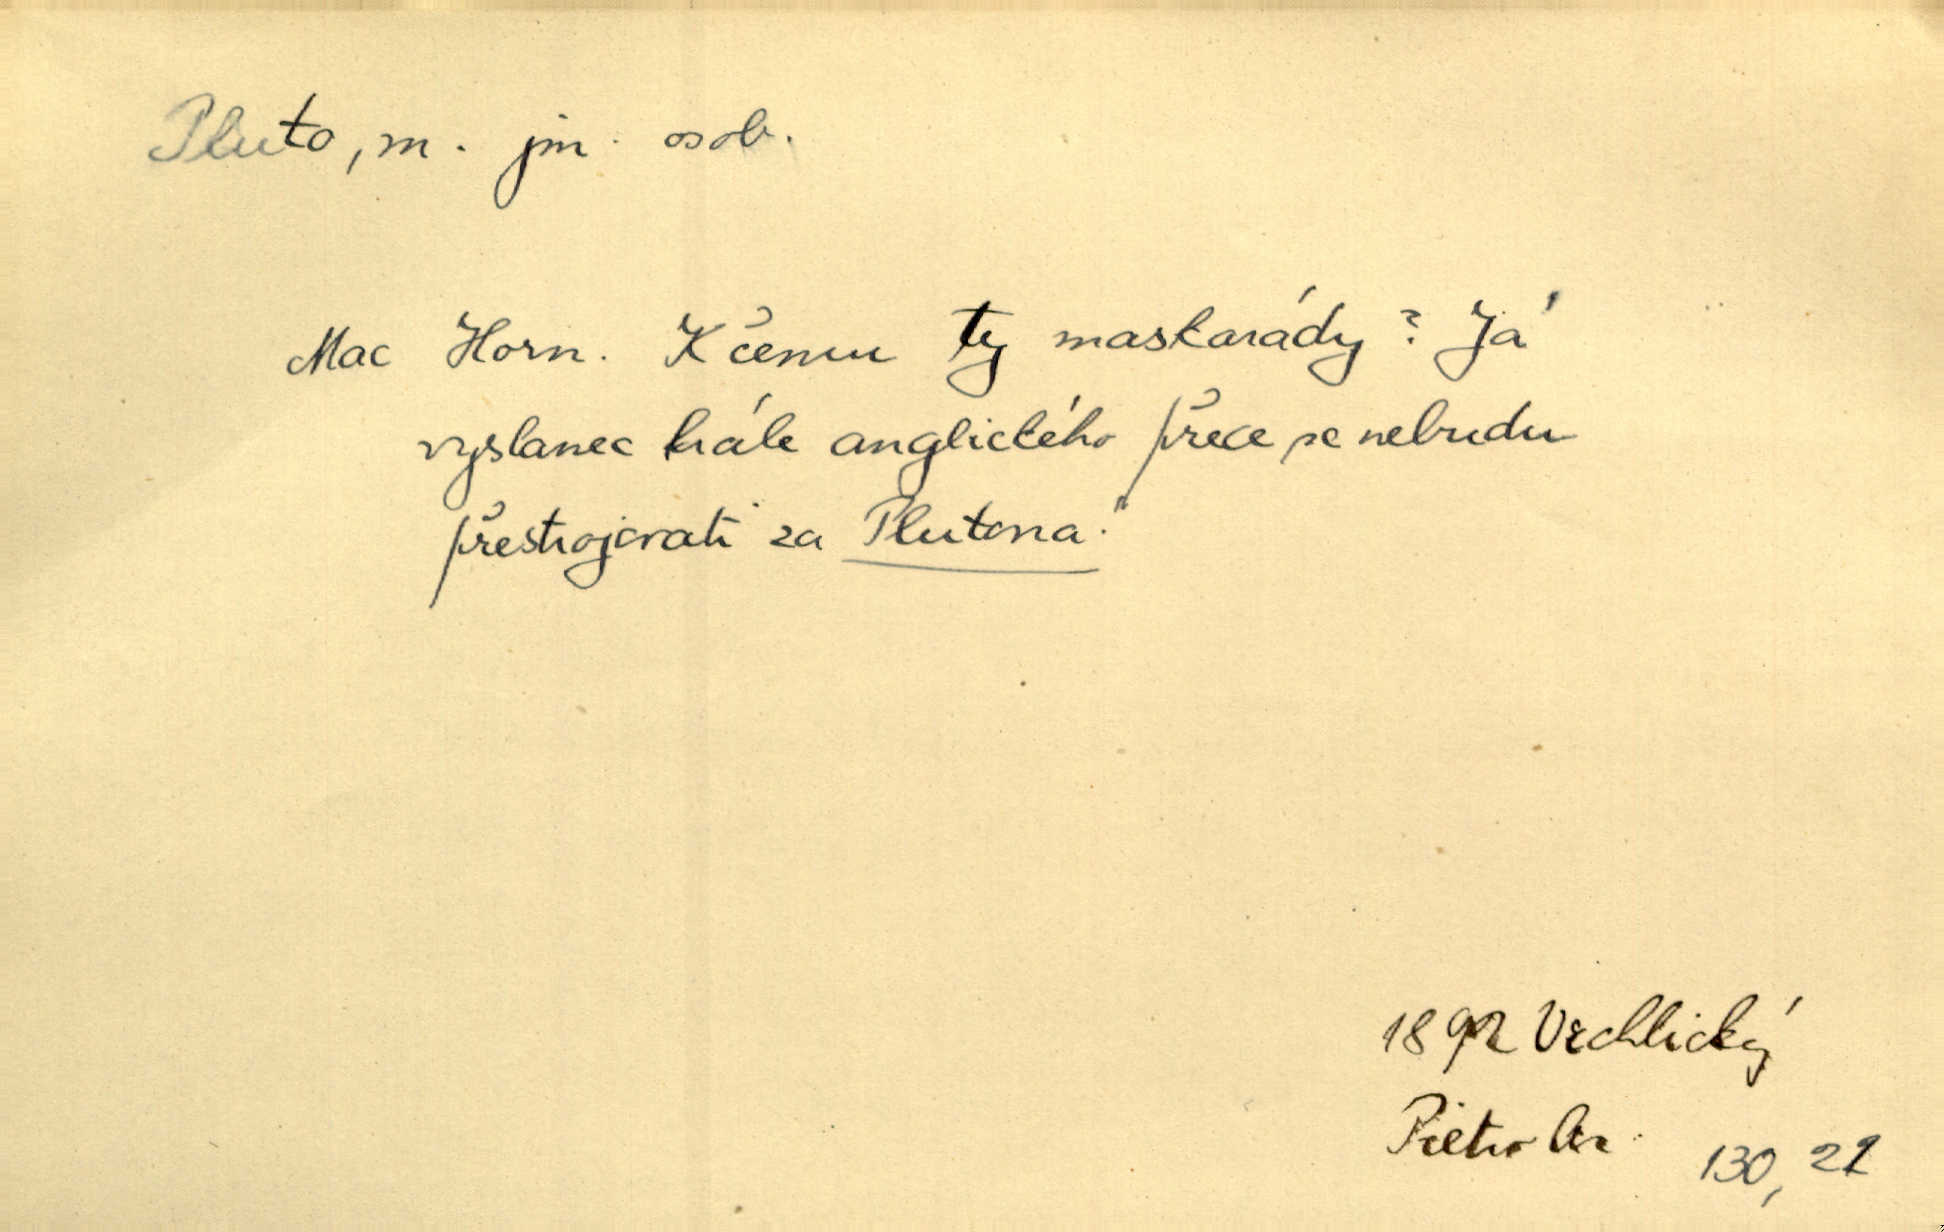 Pluto, m. jm. osob.
Mac Horn. K čemu ty maskarády? Já
vyslanec krále anglického přece se nebudu
přestrojovati za Plutona."
1892 Vrchlický
Pietro Ar. 130, 22